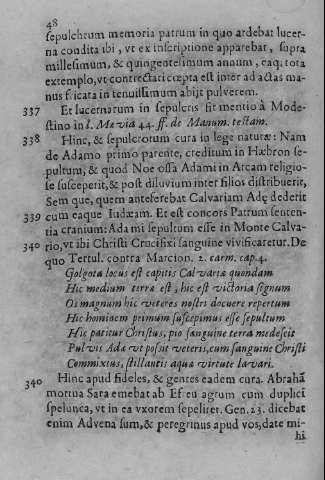 48
sepulchrum memoria patrum in quo ardebat lucer-
na condita ibi, vt ex inscriptione apparebat, supra
millesimum, & quingentesimum annum, eaq; tota
extemplo, vt contrectari cœpta est inter adactas ma-
nus fricata in tenuissimum abijt pulverem.
337 Et lucernarum in sepulcris fit mentio à Mode-
stino in l. Mævia 44. ff. de Manum. testam.
338 Hinc, & sepulcrorum cura in lege naturæ: Nam
de Adamo primo parente, creditum in Hæbron se-
pultum, & quod Noe ossa Adami in Arcam religio-
se susceperit, & post diluvium inter filios distribuerit,
Sem que, quem anteferebat Calvariam Adę dederit
339 cum eaque Iudæam. Et est concors Patrum senten-
tia cranium: Adami sepultum esse in Monte Calva-
340 rio, vt ibi Christi Crucifixi sanguine vivificaretur. De
quo Tertul. contra Marcion. 2. carm. cap. 4.
Golgota locus est capitis Calvariæ quondam
Hic medium terræ est, hic est victoria signum
Os magnum hic veteres nostri docuere repertum
Hic hominem primum suscepimus esse sepultum
Hic patitur Christus, pio sanguine terra madescit
Pulvis Adæ vt possit veteris, cum sanguine Christi
Commixtus, stillantis aquæ virtute lavari.
340 Hinc apud fideles, & gentes eadem cura. Abrahā
mortua Sara emebat ab Efreu agrum cum duplici
spelunca, vt in ea vxorem sepeliret. Gen. 23. dicebat
enim Advena sum, & peregrinus apud vos, date mi-
hi